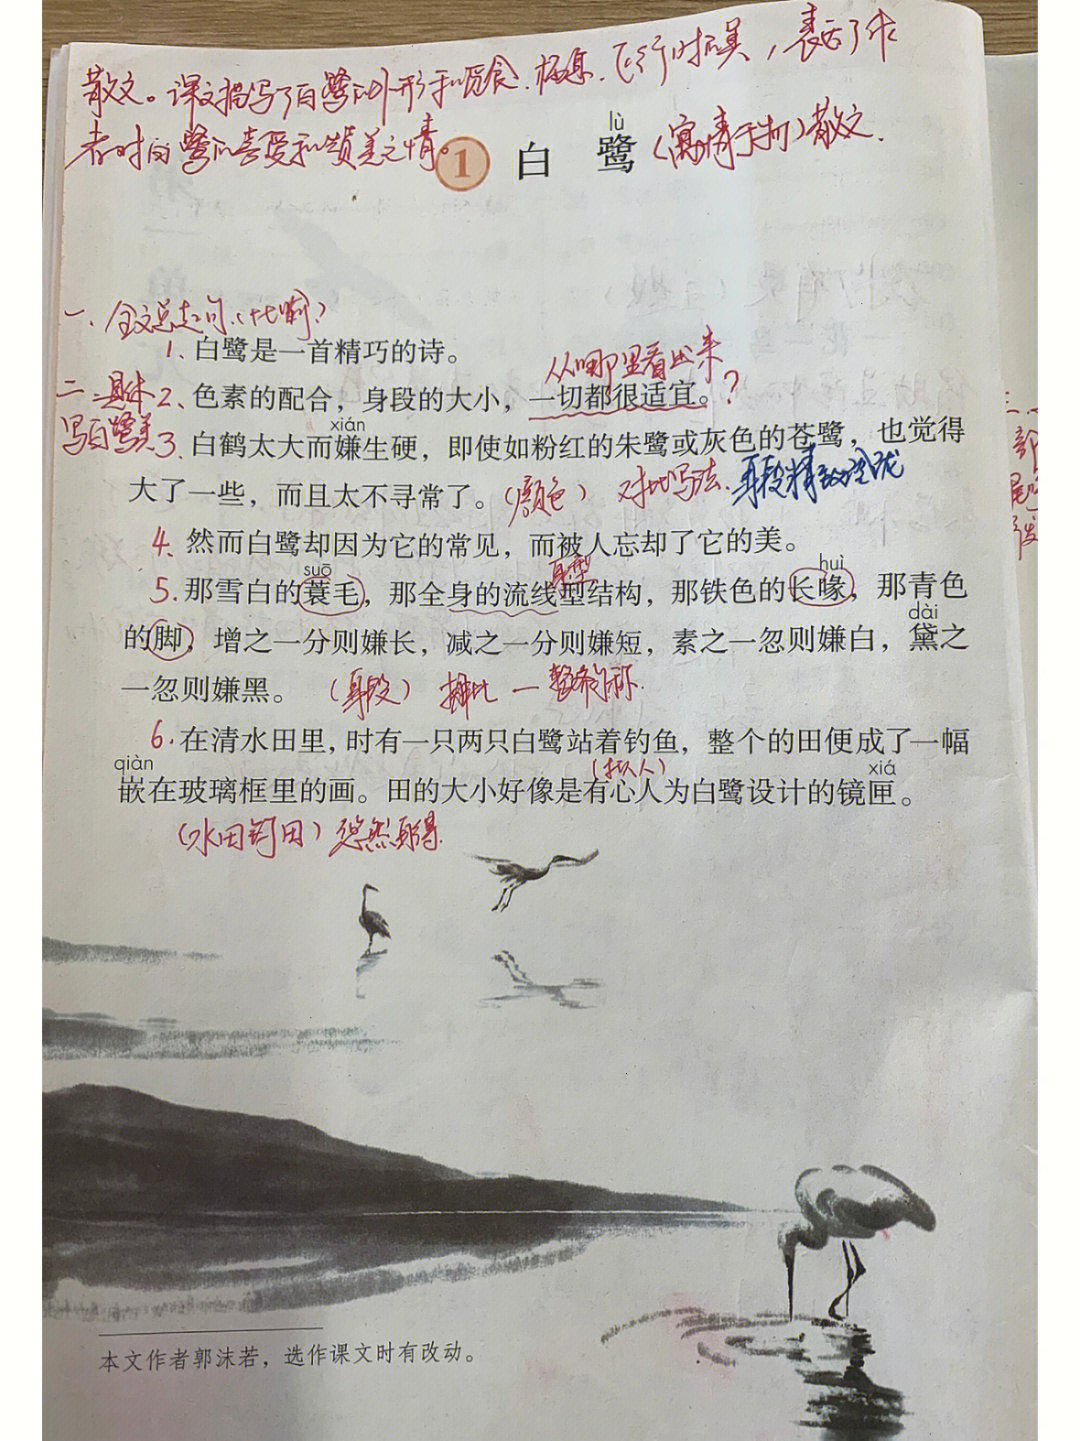 散文。课文描写了白鹭的外形和觅食、栖息、飞行时的美，表达了作
者对白鹭的喜爱和赞美之情。
lù
1 白 鹭 (寓情于物)散文.
一、全文总起句.(比喻)
1、白鹭是一首精巧的诗。
从哪里看出来
二、具体 2、色素的配合，身段的大小，一切都很适宜。?
xián
写白鹭美 3、白鹤太大而嫌生硬，即使如粉红的朱鹭或灰色的苍鹭，也觉得
大了一些，而且太不寻常了。(颜色) 对比写法.
4、然而白鹭却因为它的常见，而被人忘却了它的美。
suō 身型 huì
5.那雪白的蓑毛，那全身的流线型结构，那铁色的长喙，那青色
dài
的脚，增之一分则嫌长，减之一分则嫌短，素之一忽则嫌白，黛之
一忽则嫌黑。(身段) 排比 一
6.在清水田里，时有一只两只白鹭站着钓鱼，整个的田便成了一幅
qiàn (拟人) xiá
嵌在玻璃框里的画。田的大小好像是有心人为白鹭设计的镜匣。
(水田钓田) 悠然自得.
本文作者郭沫若，选作课文时有改动。